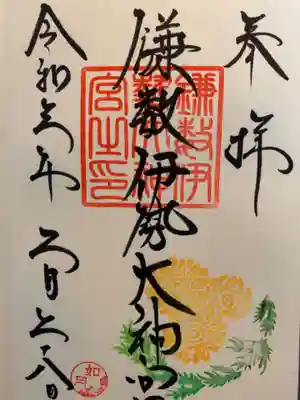 奉拝
鎌数伊勢大神宮
鎌数伊
勢大神
宮之印
令和六年 二月二十八日
如月